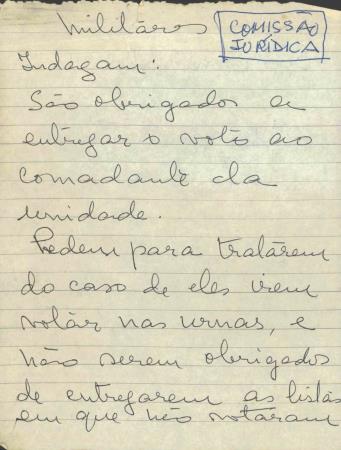 Militáres
COMISSÃO
JURÍDICA
Indagam:
São obrigados a
entregar o voto ao
comadante da
unidade.
Pedem para tratárem
do caso de eles irem
votár nas urnas, e
não serem obrigados
de entregarem as listas
em que não votáram